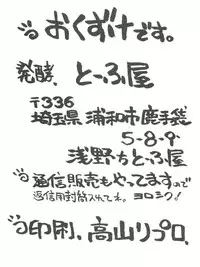 おくずけです。
発酵、とーふ屋
〒336
埼玉県 浦和市鹿手袋
5-8-9
浅野ちとーふ屋
通信販売もやってますので
返信用封筒入れてネ。ヨロシク!
印刷、高山リプロ.